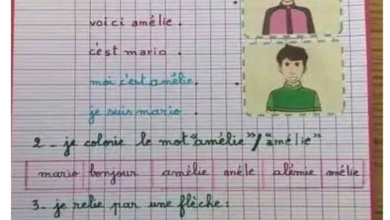 voici amélie .
c'est mario .
moi c'est amélie .
je suis mario .
2 - je colorie le mot "amélie" / "amélie"
mario bonjour amélie anéle alémie amélie
3 - je relie par une flèche :